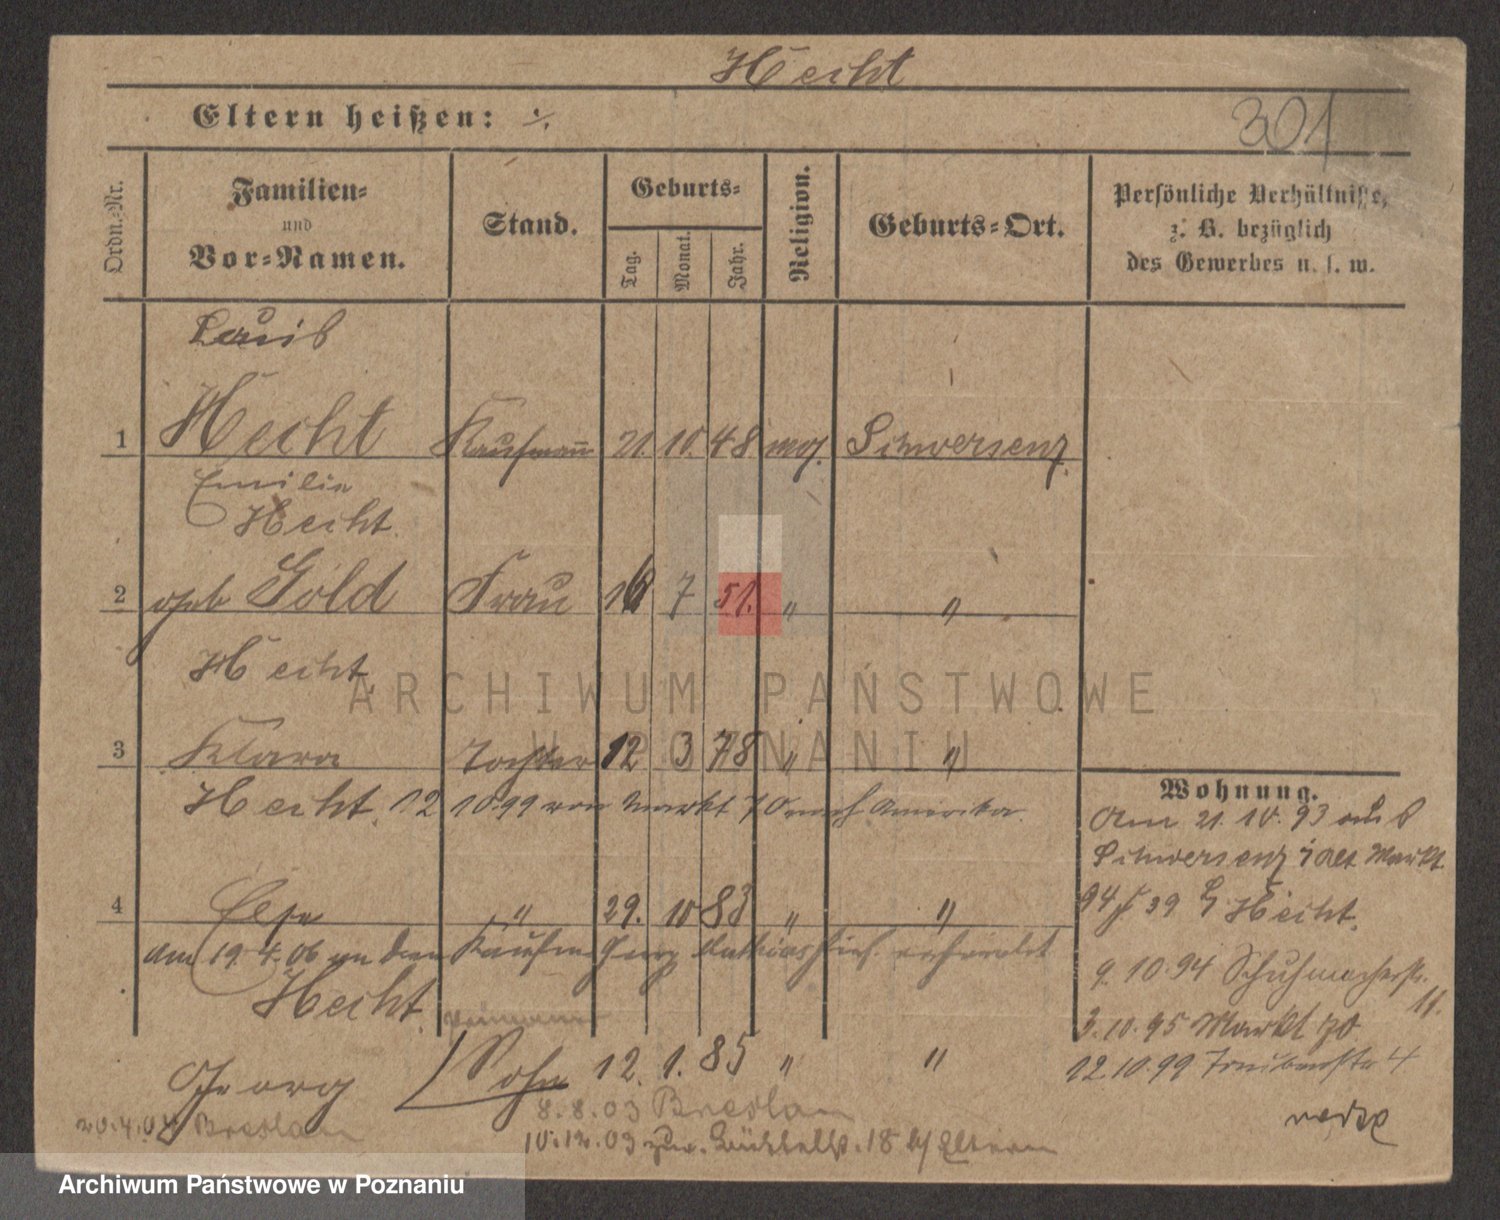 Hecht
Eltern heißen: ./.
301
Ordn.-Nr.
Familien-
und
Vor-Namen.
Stand.
Geburts-
Tag.
Monat.
Jahr.
Religion.
Geburts-Ort.
Persönliche Verhältnisse,
z. B. bezüglich
des Gewerbes u. s. w.
Louis
1 Hecht Kaufmann 21. 10. 48 mos. Schwersenz
Emilie
Hecht
2 geb Gold Frau 16 7 51. " "
Hecht
3 Klara Tochter 12 3 78 " "
Hecht 12 10.99 von Markt 70 nach Amerika
4 Else " 29. 10 83 " "
am 19.4.06 an den Kaufm Georg verheiratet
Hecht
Georg Sohn 12. 1. 85 " "
8.8.03 Breslau
20.4.04 Breslau
10.12.03 zur. 18 b/ Eltern
Wohnung.
Am 21.10.93 aus
Schwersenz Alt. Markt
94 Hecht.
9.10.94 Schuhmacherstr.
11.
3.10.95 Markt 70
12.10.99 4
ARCHIWUM PAŃSTWOWE
W POZNANIU
Archiwum Państwowe w Poznaniu